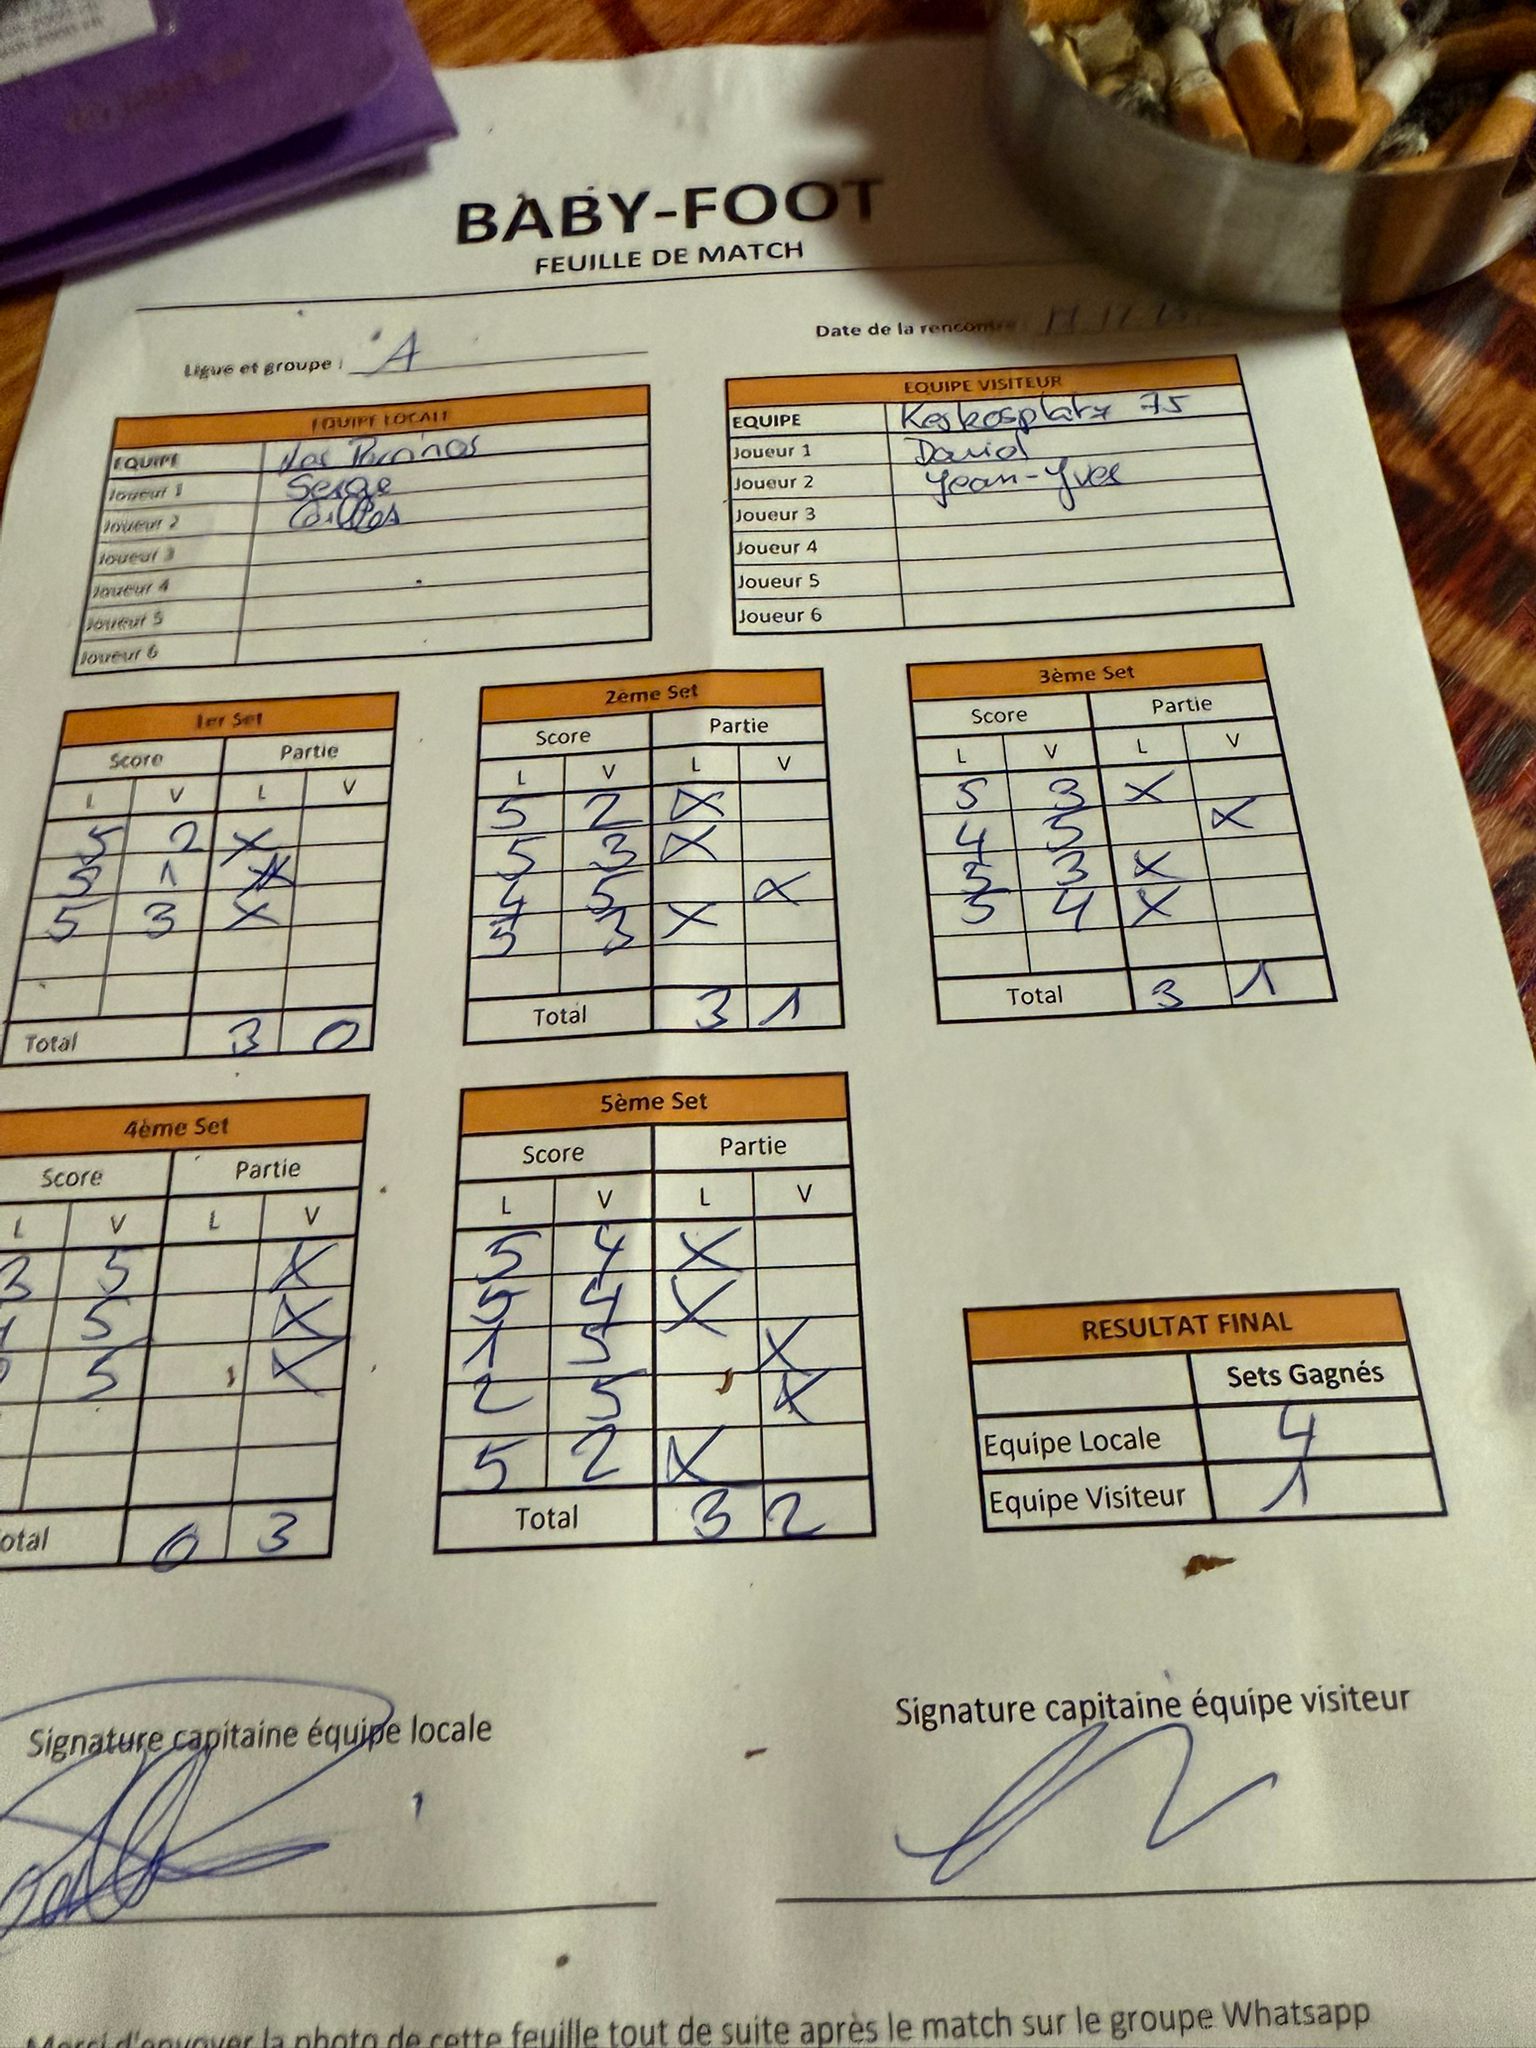 BABY-FOOT
FEUILLE DE MATCH
Ligue et groupe : A
Date de la rencontre :
EQUIPE LOCALE
EQUIPE
Joueur 1 Serge
Joueur 2 Gilles
Joueur 3
Joueur 4
Joueur 5
Joueur 6
EQUIPE VISITEUR
EQUIPE 75
Joueur 1 David
Joueur 2 Jean-Yves
Joueur 3
Joueur 4
Joueur 5
Joueur 6
1er Set
Score Partie
L V L V
5 2 X
5 1 X
5 3 X
Total 3 0
2ème Set
Score Partie
L V L V
5 2 X
5 3 X
4 5 X
5 3 X
Total 3 1
3ème Set
Score Partie
L V L V
5 3 X
4 5 X
5 3 X
5 4 X
Total 3 1
4ème Set
Score Partie
L V L V
3 5 X
5 X
5 X
otal 0 3
5ème Set
Score Partie
L V L V
5 4 X
5 4 X
1 5 X
2 5 X
5 2 X
Total 3 2
RESULTAT FINAL
Sets Gagnés
Equipe Locale 4
Equipe Visiteur 1
Signature capitaine équipe locale
Signature capitaine équipe visiteur
Merci d'envoyer la photo de cette feuille tout de suite après le match sur le groupe Whatsapp